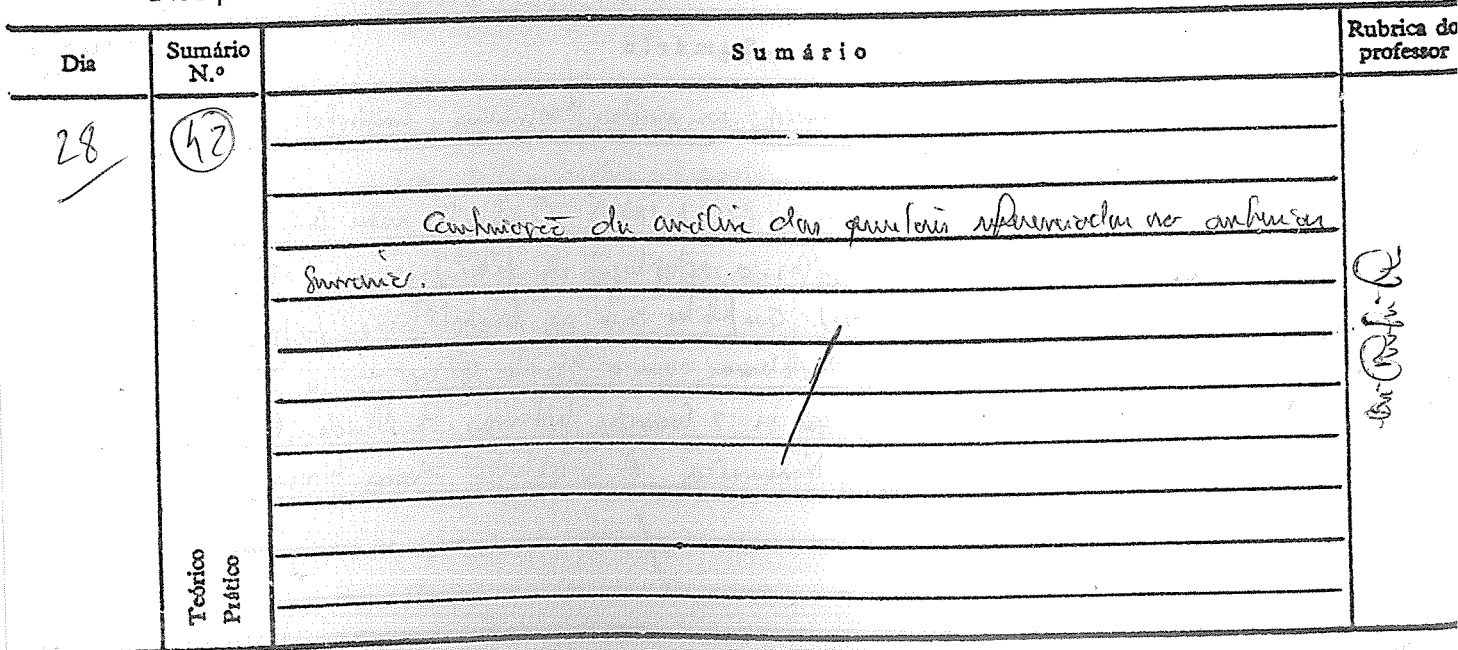 Dia
Sumário
N.º
Sumário
Rubrica do
professor
28
42
Continuação da análise das questões referenciadas no anterior
Sumário.
Teórico
Prático